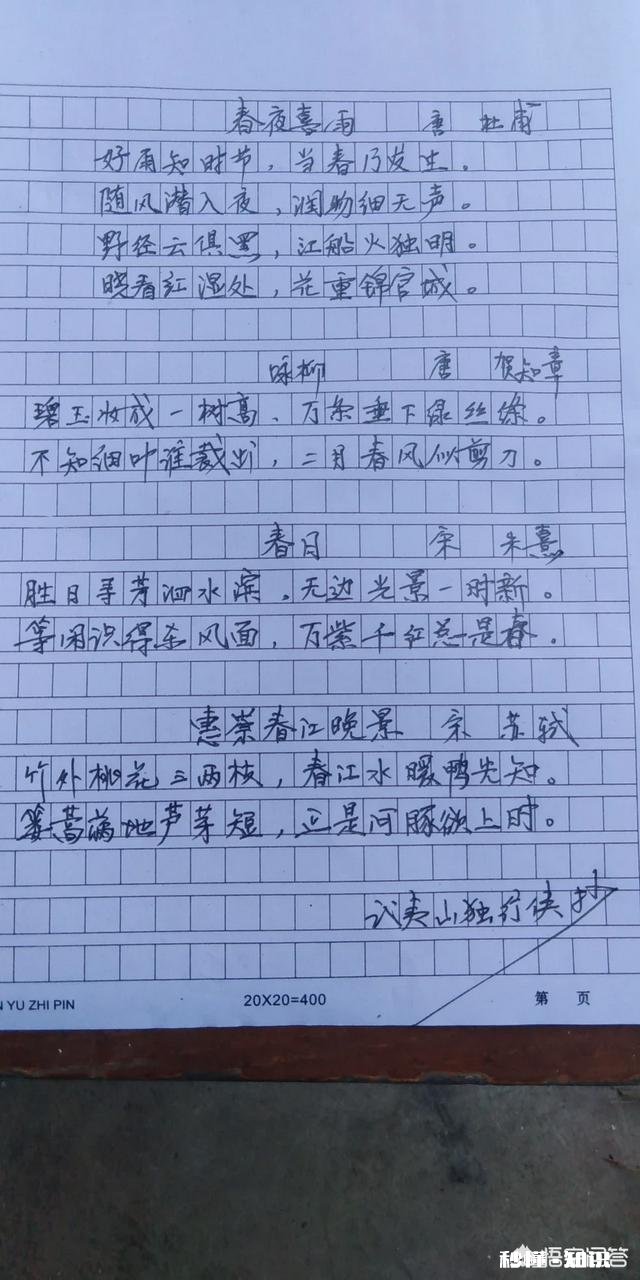 春夜喜雨 唐 杜甫
好雨知时节，当春乃发生。
随风潜入夜，润物细无声。
野径云俱黑，江船火独明。
晓看红湿处，花重锦官城。
咏柳 唐 贺知章
碧玉妆成一树高、万条垂下绿丝绦。
不知细叶谁裁出，二月春风似剪刀。
春日 宋 朱熹
胜日寻芳泗水滨。无边光景一时新。
等闲识得东风面，万紫千红总是春.
惠崇春江晚景 宋 苏轼
竹外桃花三两枝，春江水暖鸭先知。
蒌蒿满地芦芽短，正是河豚欲上时。
武夷山独行侠抄
N YU ZHI PIN 20X20=400 第 页
悟空问答
秒懂 知识